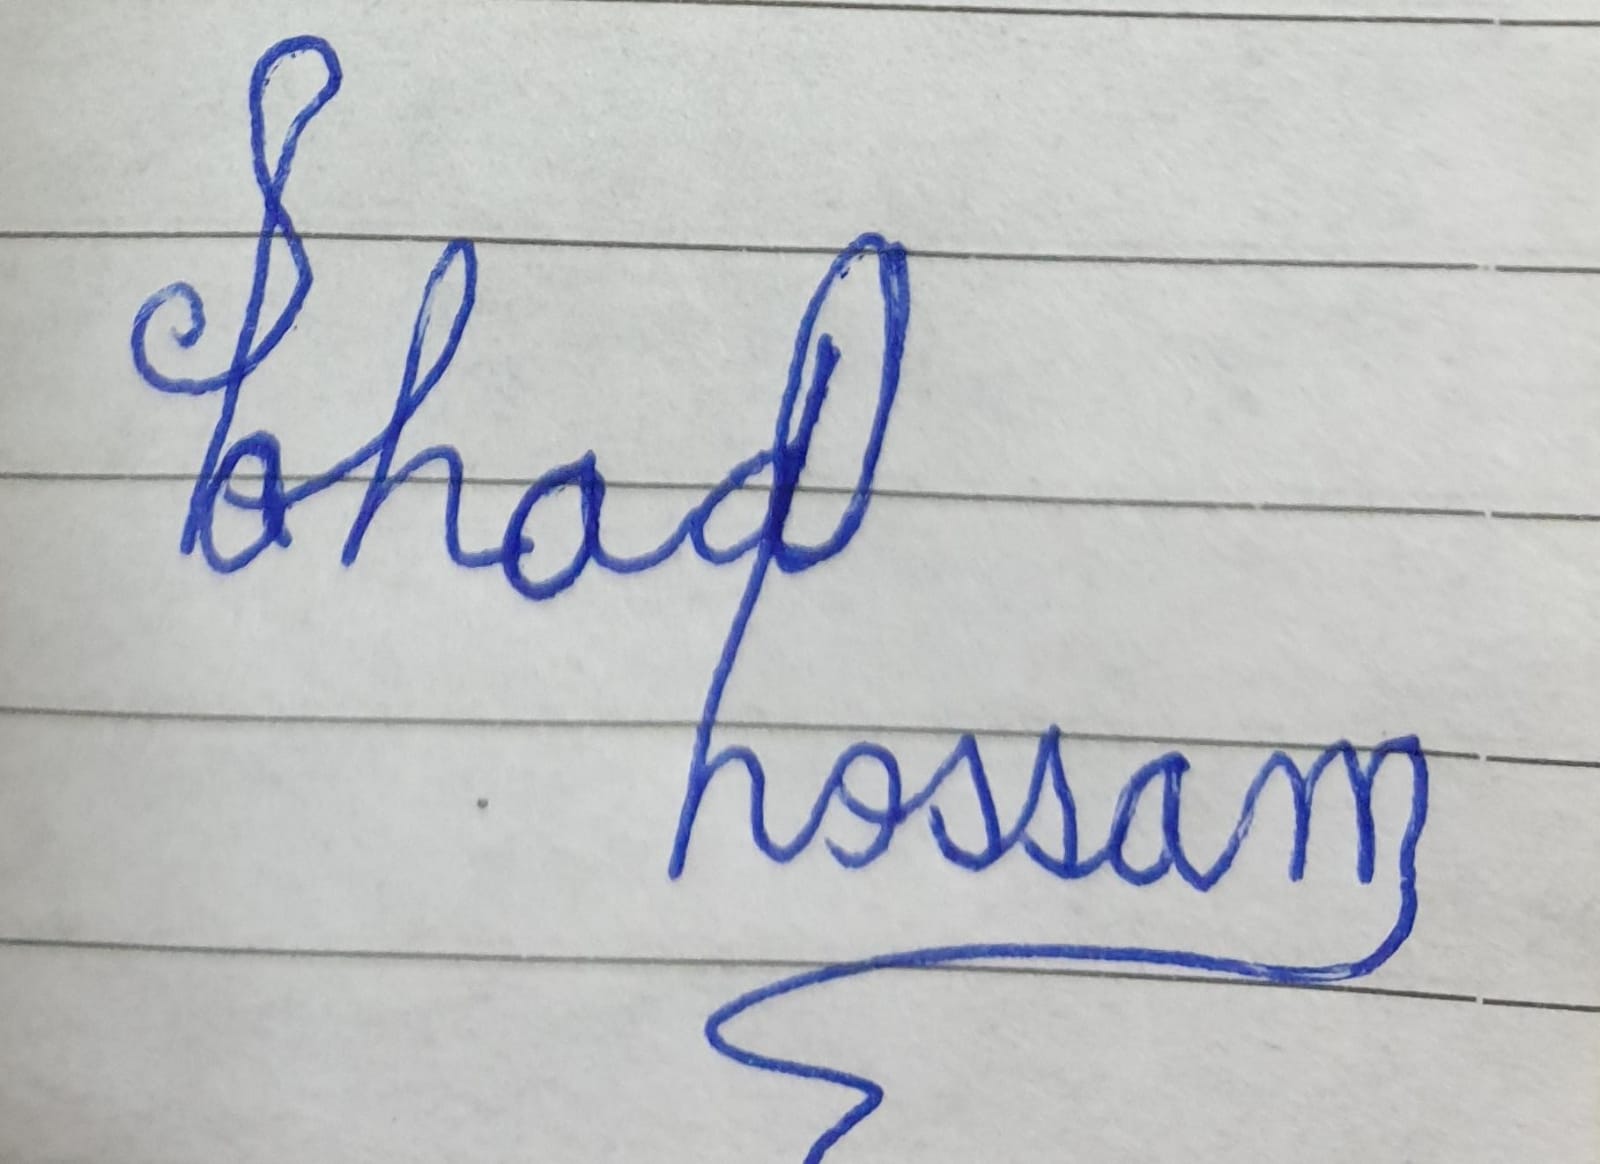 Shahad
hossam